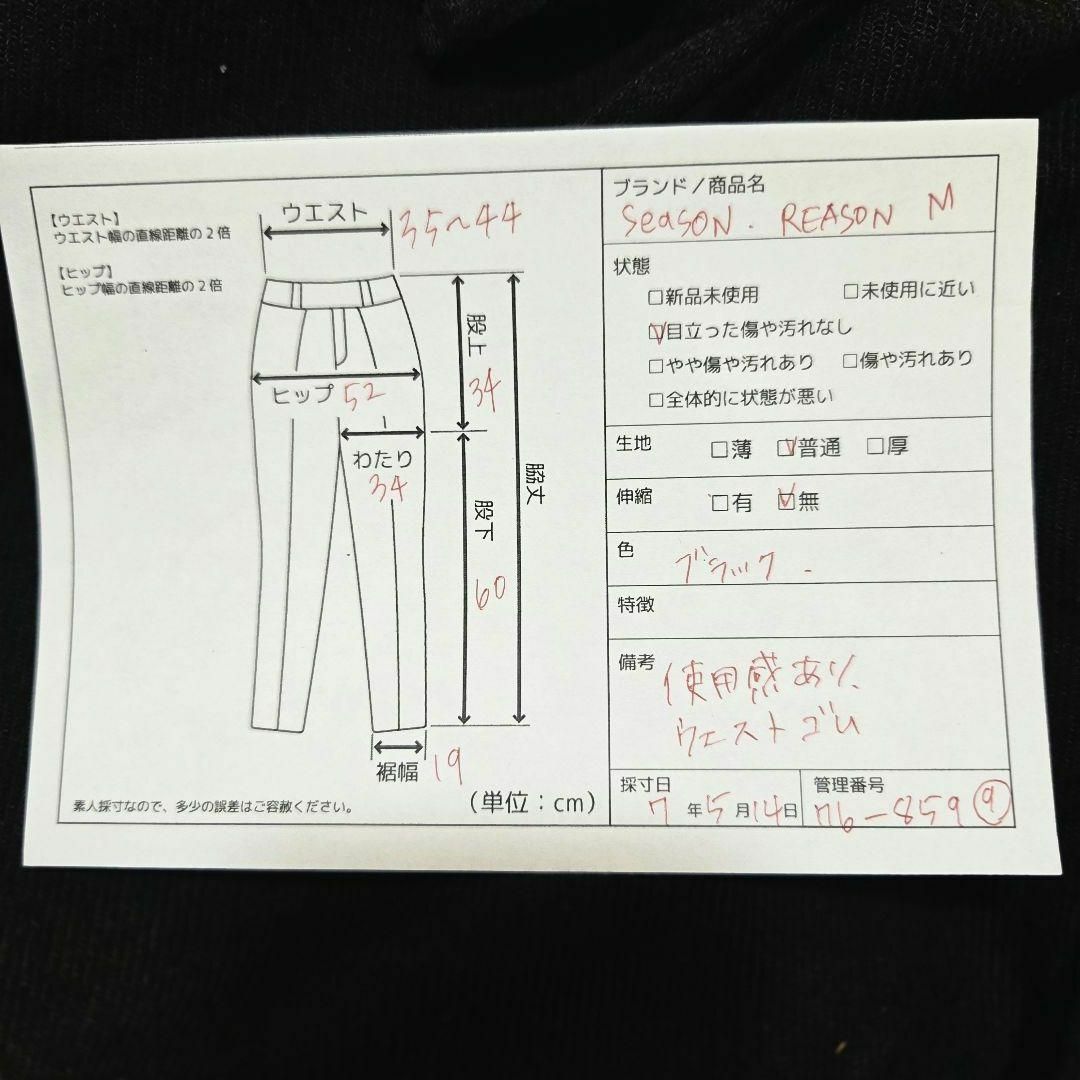 【ウエスト】
ウエスト幅の直線距離の2倍
【ヒップ】
ヒップ幅の直線距離の2倍
ウエスト 35~44
股上 34
ヒップ 52
わたり
34
脇丈
股下
60
裾幅 19
素人採寸なので、多少の誤差はご容赦ください。
(単位:cm)
ブランド/商品名
SeaSON. REASON M
状態
□新品未使用 □未使用に近い
☑目立った傷や汚れなし
□やや傷や汚れあり □傷や汚れあり
□全体的に状態が悪い
生地 □薄 ☑普通 □厚
伸縮 □有 ☑無
色
ブラック.
特徴
備考 使用感あり、
ウエストゴム
採寸日
7年5月14日
管理番号
76-859 ⑨